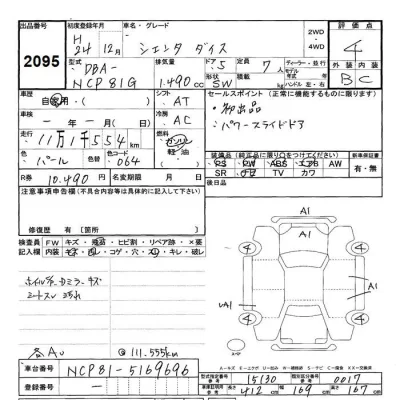 出品番号 初度登録年月 車名・グレード 2WD・4WD 評価点
2095 H 24年 12月 シエンタ ダイス 4
型式 排気量 ドア 5 定員 7人 ディーラー・並行
DBA-NCP81G 1.490cc 形状 SW 外装 内装 B C
車歴 自家用・( ) シフト AT セールスポイント(正常に機能するものに限ります)
車検 ー年ー月 冷房 AC ・初出品
走行 11万1千554km 燃料 ガソリン 軽油 ・パワースライドドア
色 パール 色替 色コード 064
R券 10.490円 名変期限 月 日
装備品(純正品に限り○をつけてください) 新車保証書
PS PW ABS エアB AW 有・無
SR TV カワ
注意事項申告欄(不具合内容などは具体的に記入して下さい) 後日品
修復歴 有( )[箇所 ]
検査員記入欄 FW キズ・飛石・ヒビ割・リペア跡・×要
内装 コゲ・穴・キレ・破レ
A1
4 4
A1 A1
A1
4 4
各AU @111.555km
車台番号 NCP81-5169696
登録番号 ー
型式指定番号 15130 類別区分番号 0017
長さ 412 幅 169 高さ 167